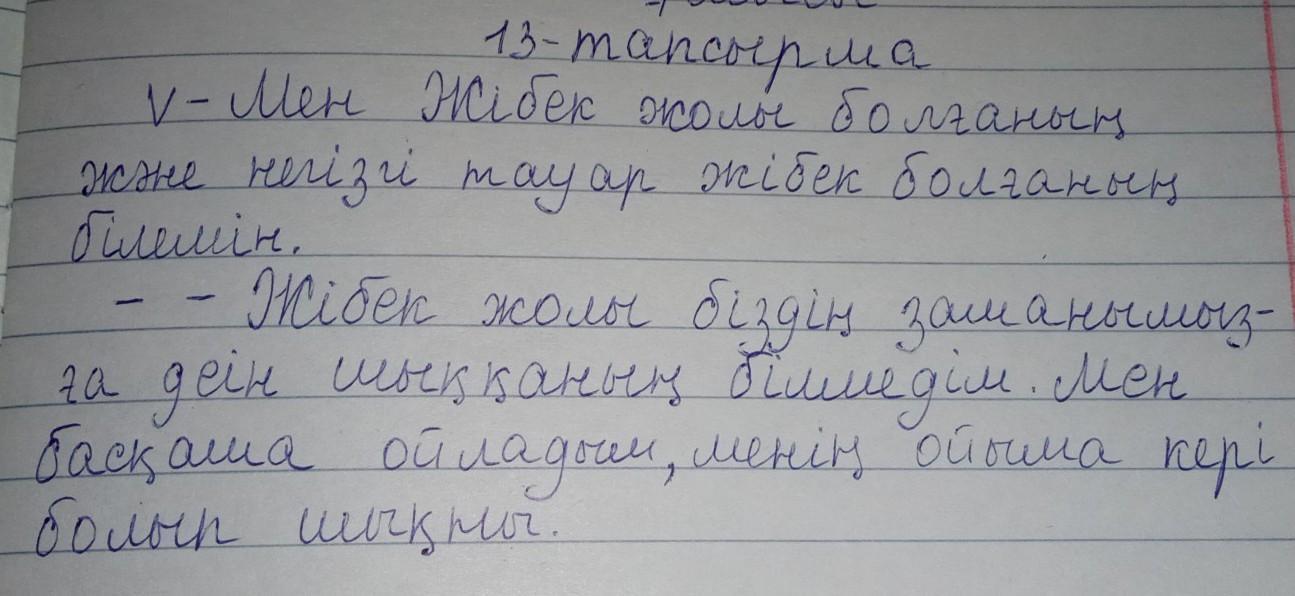 13-тапсырма
V - Мен Жібек жолы болғаның
және негізгі тауар жібек болғаның
білемін.
- - Жібек жолы біздің заманымыз-
ға деін шыққаның білмедім. Мен
басқаша ойладым, менің ойыма кері
болып шықты.